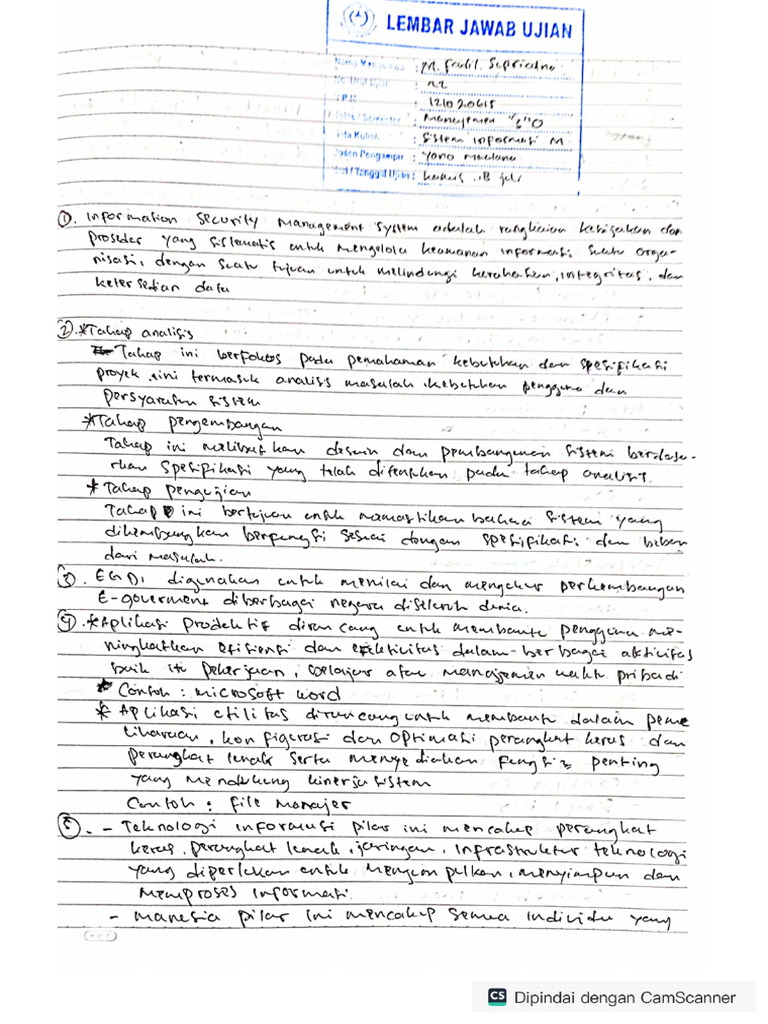 LEMBAR JAWAB UJIAN
: M. Fadil Supriatna
: 22
: 1210206
: Manajemen "S" O
: Sistem informasi M
Dosen Pengampu : Yono Maulana
Hari / Tanggal Ujian : Kamis, 18 Juli
1. Information Security Management System adalah rangkaian kebijakan dan
prosedur yang sistematis untuk mengelola keamanan informasi suatu orga-
nisasi, dengan suatu tujuan untuk melindungi kerahasian, integritas, dan
ketersedian data
2. *Tahap analisis
Tahap ini berfokus pada pemahaman kebutuhan dan spesifikasi
proyek, ini termasuk analisis masalah, kebutuhan pengguna dan
persyaratan sistem
*Tahap pengembangan
Tahap ini melibatkan desain dan pembangunan sistem berdasa-
rkan spesifikasi yang telah ditentukan pada tahap analisis.
* Tahap pengujian
Tahap ini bertujuan untuk memastikan bahwa sistem yang
dikembangkan berfungsi sesuai dengan spesifikasi dan bebas
dari masalah.
3. EGDI digunakan untuk menilai dan mengukur perkembangan
E-goverment diberbagai negara diseluruh dunia.
4. *Aplikasi Produktif dirancang untuk membantu pengguna me-
ningkatkan efisiensi dan efektivitas dalam berbagai aktivitas
baik itu pekerjaan, belajar atau manajemen waktu pribadi
* Contoh : microsoft word
* Aplikasi utilitas dirancang untuk membantu dalam peme
liharaan, konfigurasi dan optimasi perangkat keras dan
perangkat lunak serta menyediakan fungsi2 penting
yang mendukung kinerja sistem
Contoh : file manajer
5. - Teknologi informasi pilar ini mencakup perangkat
keras, perangkat lunak, jaringan, infrastruktur teknologi
yang diperlukan untuk mengumpulkan, menyimpan dan
memproses informasi.
- manusia pilar ini mencakup semua individu yang
CS Dipindai dengan CamScanner